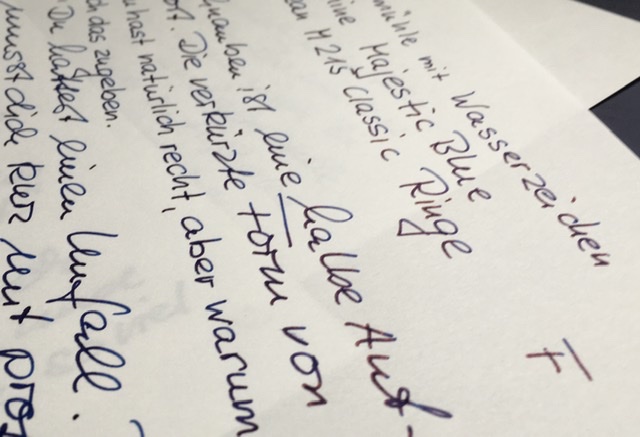 mühle mit Wasserzeichen
Majestic Blue
M 215 Classic Ringe
F
ist eine halbe Aut-
. Die verkürzte Form von
hast natürlich recht, aber warum
das zugeben.
"Du hattest einen Unfall.
musst dich kurz mit